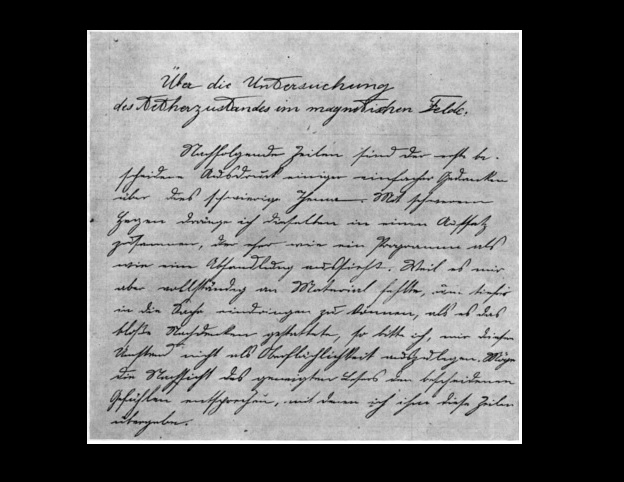 Über die Untersuchung
des Aetherzustandes im magnetischen Felde.
Nachfolgende Zeilen sind der erste be-
scheidene Ausdruck einiger einfacher Gedanken
über dies schwierige Thema. Mit schwerem
Herzen dränge ich dieselben in einen Aufsatz
zusammen, der eher wie ein Programm als
wie eine Abhandlung aussieht. Weil es mir
aber vollständig an Material fehlte, um tiefer
in die Sache eindringen zu können, als es das
bloße Nachdenken gestattete, so bitte ich, mir diesen
Umstand nicht als Oberflächlichkeit auszulegen. Möge
die Nachsicht des geneigten Lesers den bescheidenen
Gefühlen entsprechen, mit denen ich ihm diese Zeilen
übergebe.